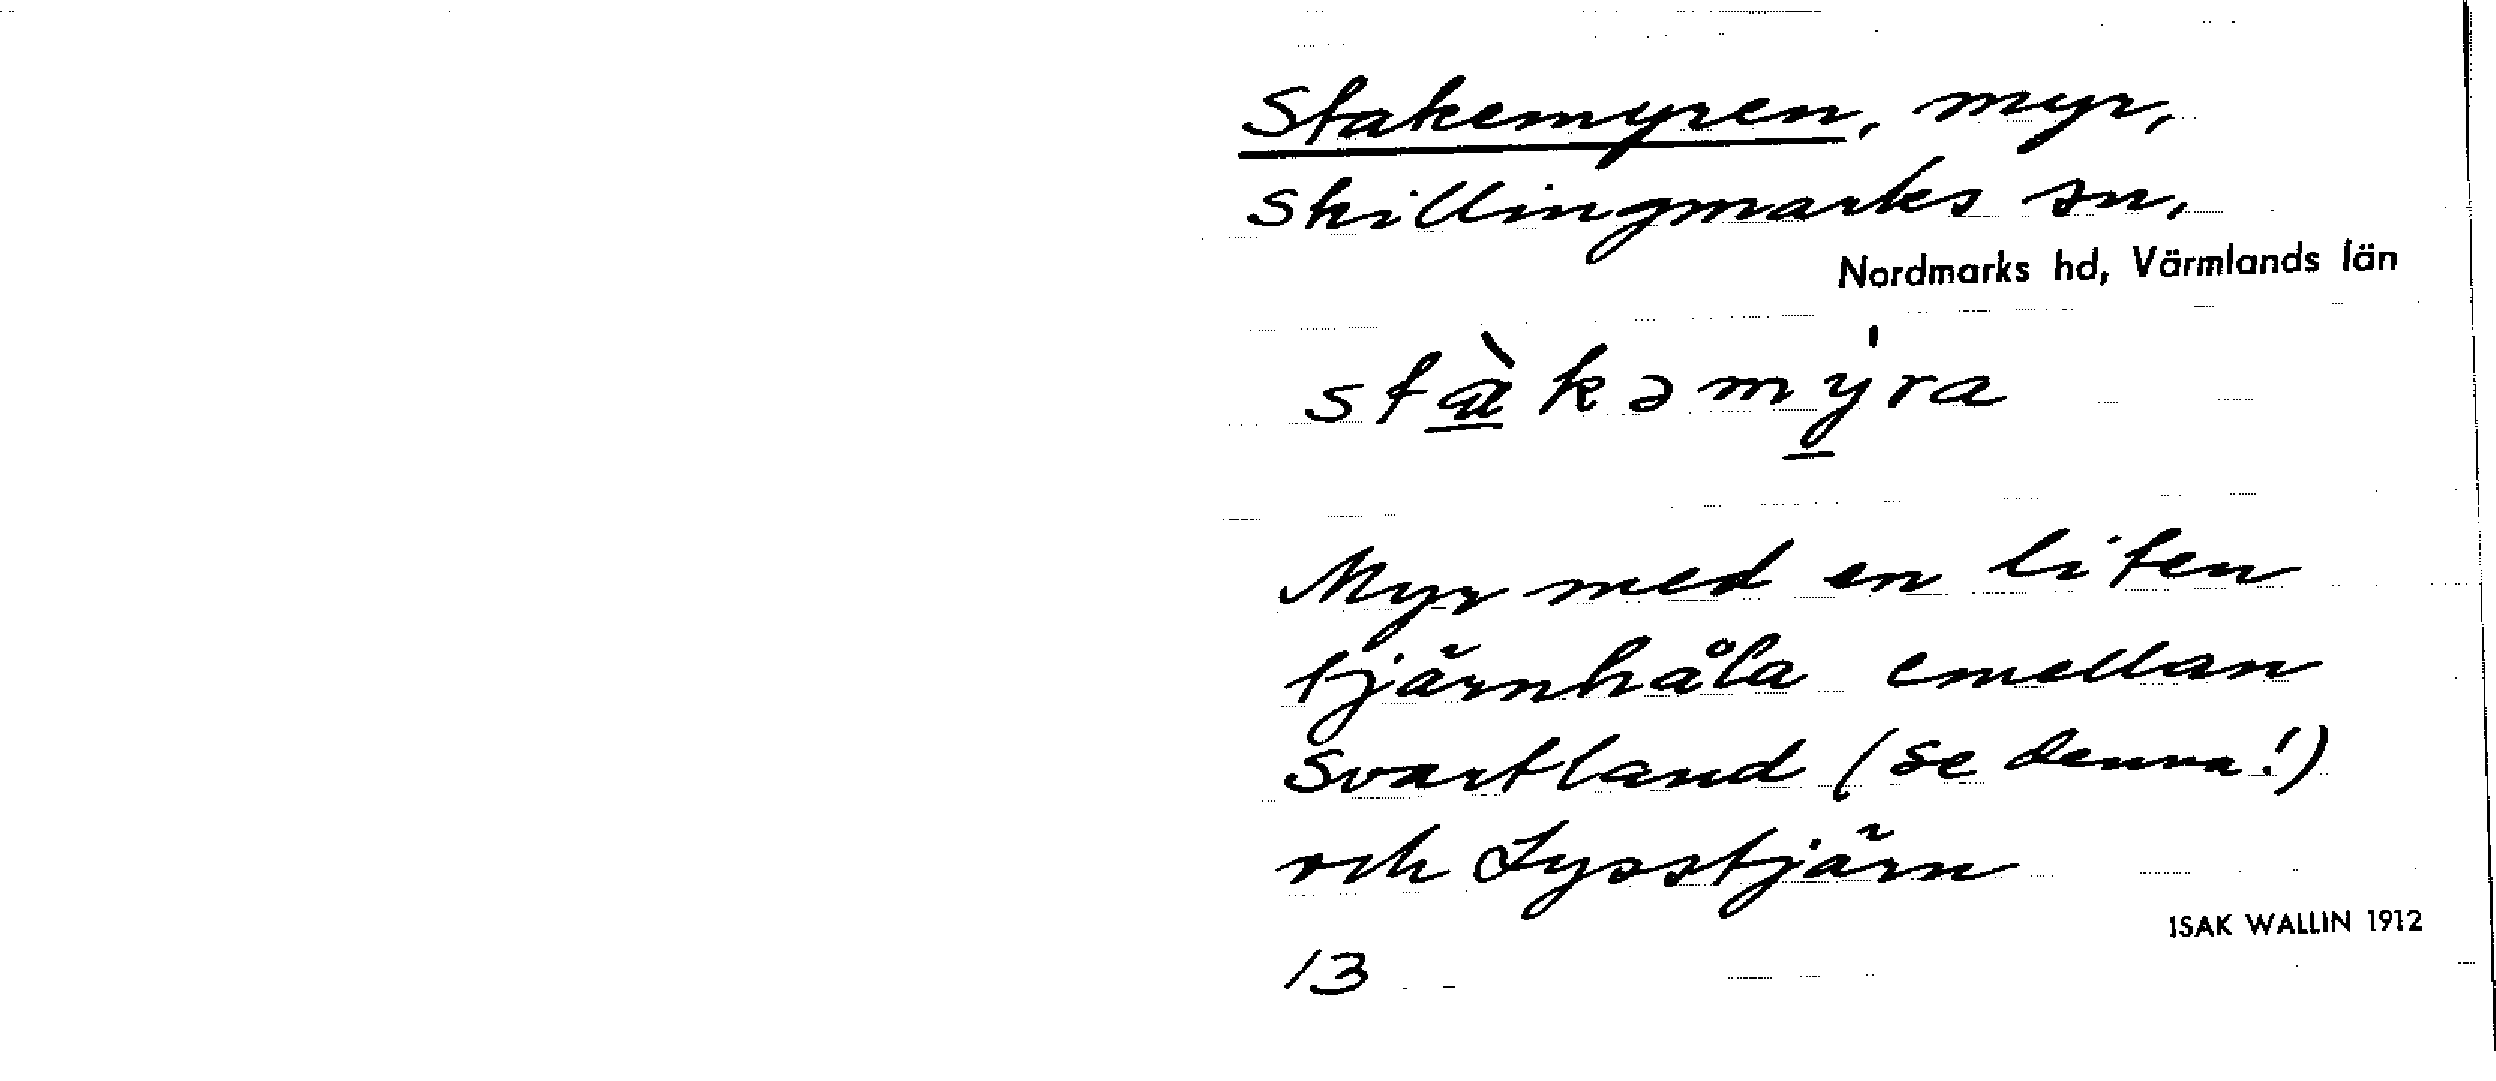 Stakemyren, myr,
Skillingmarks sn,
Nordmarks hd, Värmlands län
stàkəmy̍ra
Myr med en liten
tjärnhåla emellan
Svartland (se denna!)
och Lysstjärn
ISAK WALLIN 1912
13